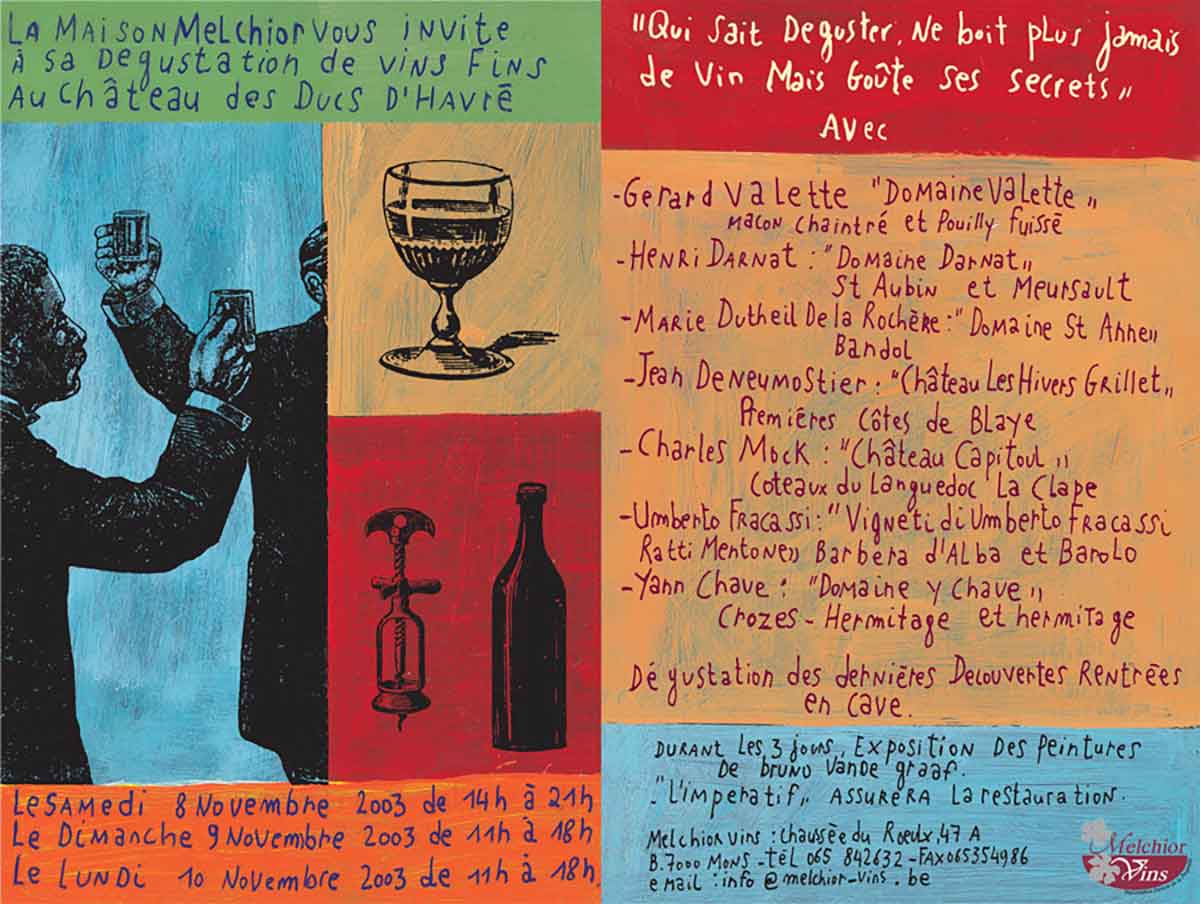 La Maison Melchior vous invite
à sa Degustation de vins Fins
Au château des Ducs D'Havré
Le Samedi 8 Novembre 2003 de 14h à 21h
Le Dimanche 9 Novembre 2003 de 11h à 18h
Le Lundi 10 Novembre 2003 de 11h à 18h.
"Qui sait Deguster, Ne boit plus jamais
de Vin Mais Goûte ses secrets"
Avec
-Gerard Valette "Domaine Valette"
Macon chaintré et Pouilly fuissé
-Henri Darnat : "Domaine Darnat"
St Aubin et Meursault
-Marie Dutheil De la Rochère : "Domaine St Anne"
Bandol
-Jean Deneumostier : "Château Les Hivers Grillet"
Premières Côtes de Blaye
-Charles Mock : "Château Capitoul"
Coteaux du Languedoc La Clape
-Umberto Fracassi : "Vigneti di Umberto Fracassi
Ratti Mentone" Barbera d'Alba et Barolo
-Yann Chave : "Domaine y Chave"
Crozes-Hermitage et hermitage
Dégustation des dernières Decouvertes Rentrées
en cave.
Durant Les 3 jours, Exposition Des Peintures
De bruno Vande graaf.
-"L'imperatif" assurera La restauration.
Melchior vins : chaussée du Roeulx, 47 A
B.7000 Mons - tél 065 842632 - Fax 065354986
email : info@melchior-vins.be
Melchior
Vins